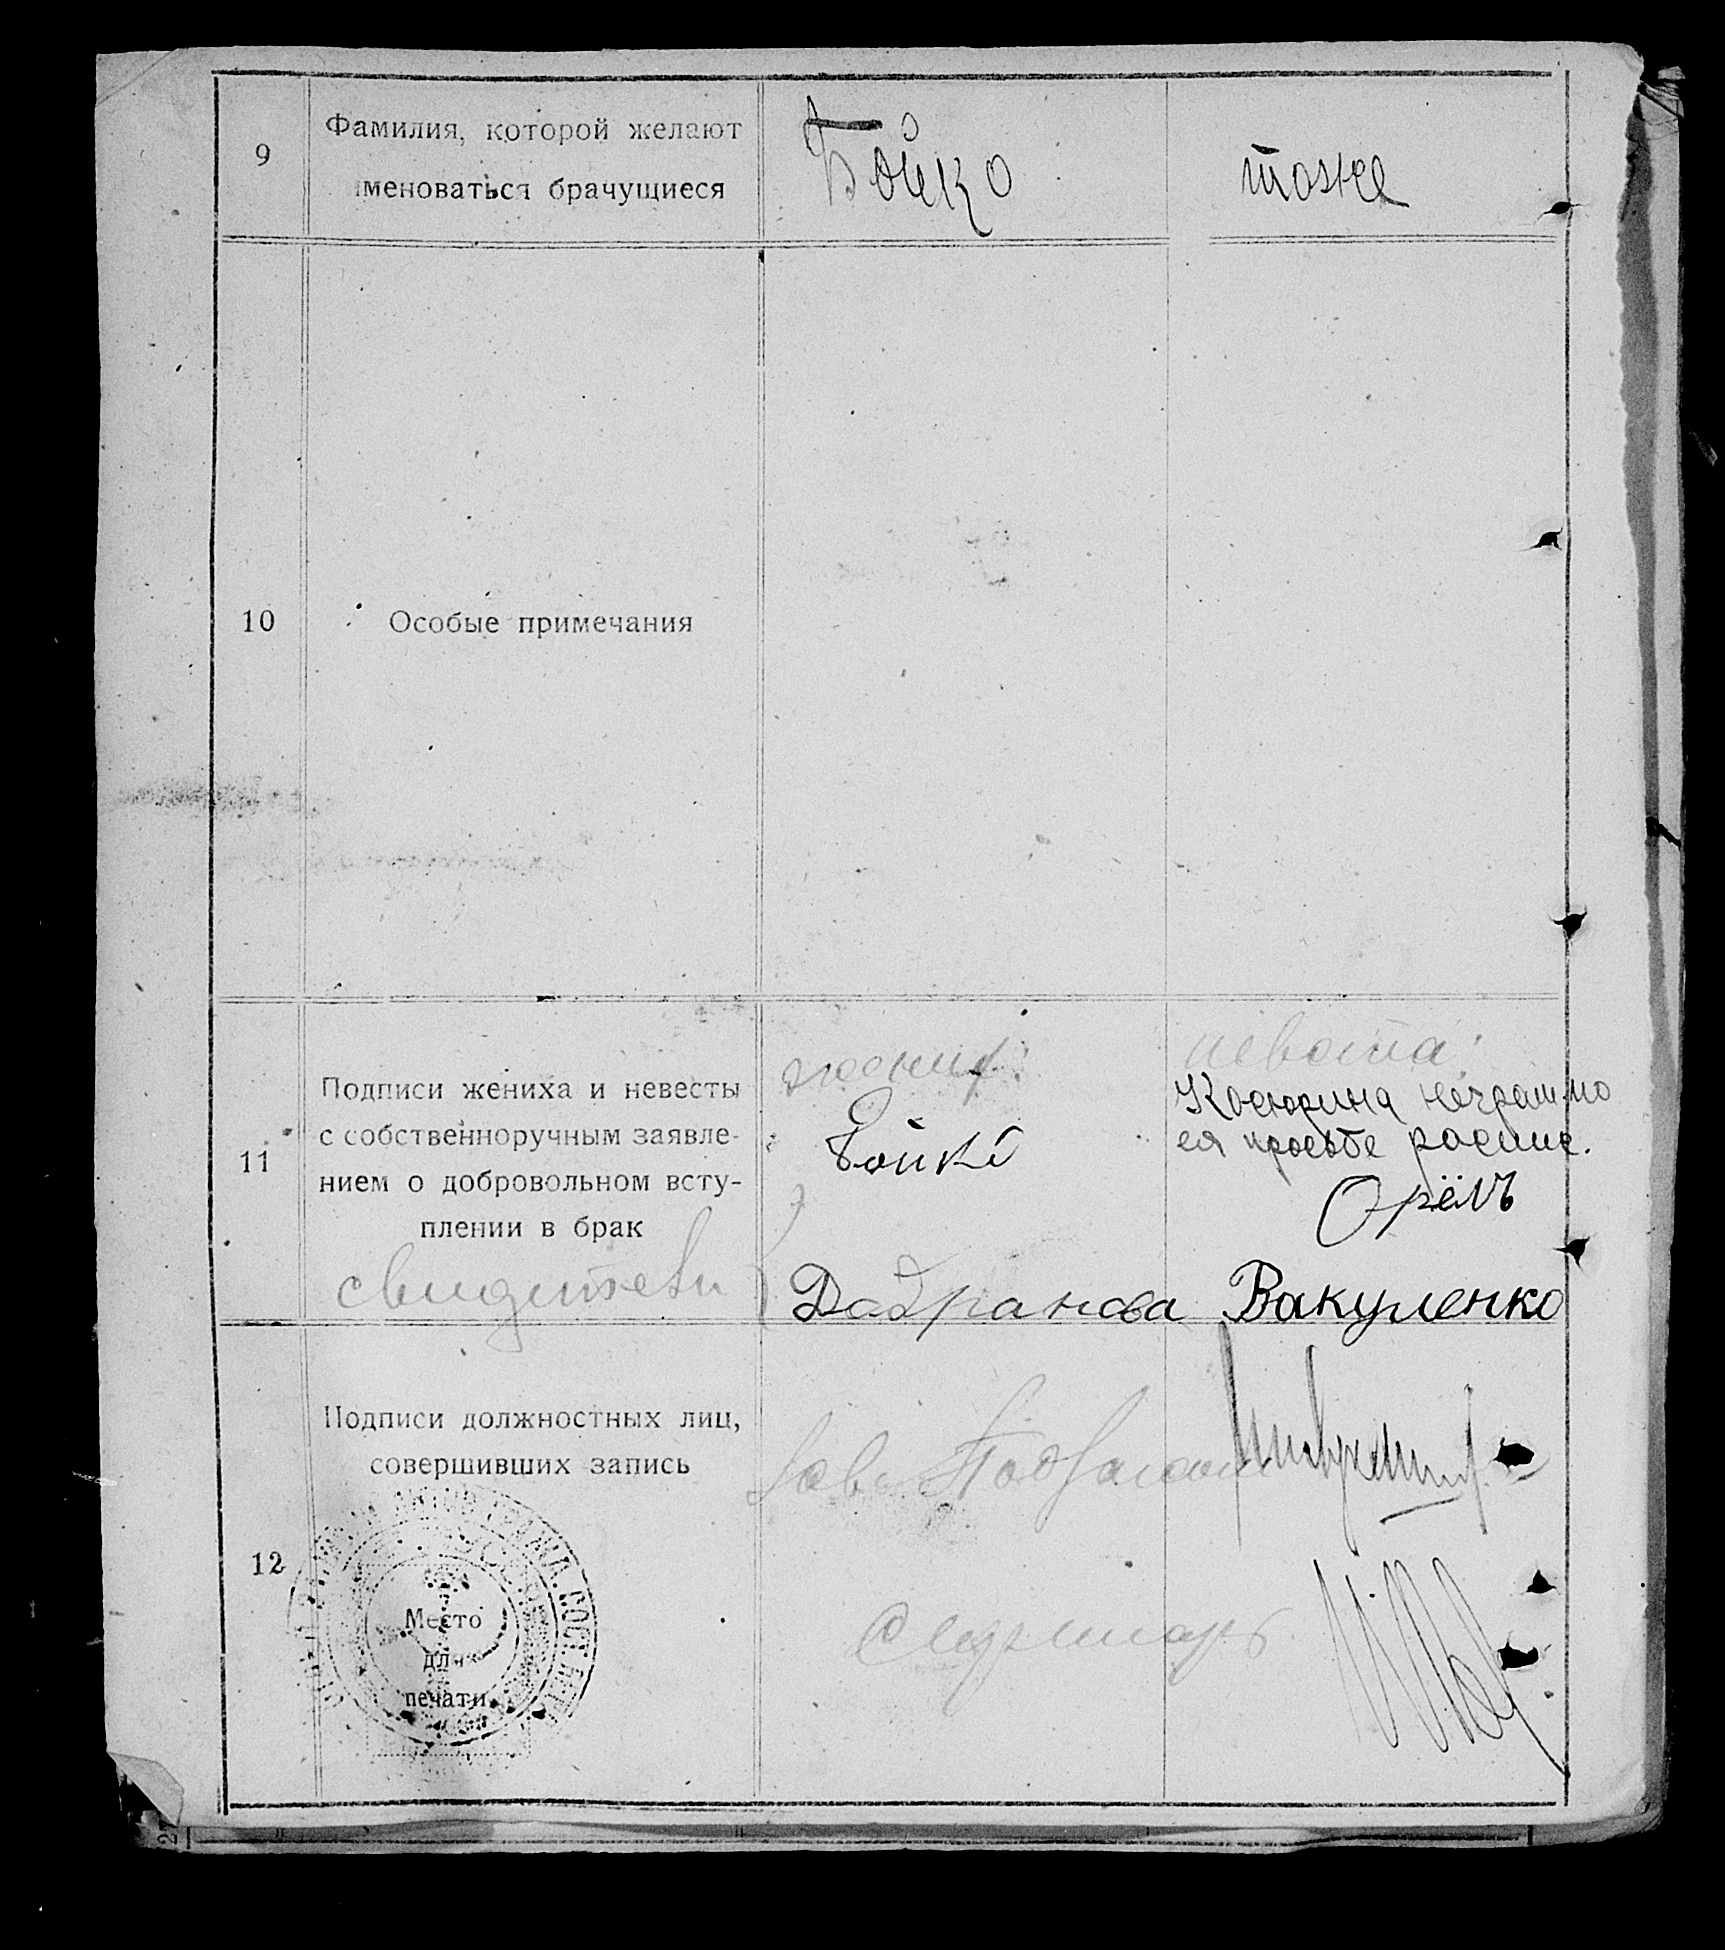 9
Фамилия, которой желают
меноваться брачущиеся
Бойко
тоже
10
Особые примечания
11
Подписи жениха и невесты
с собственноручным заявле-
нием о добровольном всту-
плении в брак
жених:
Бойко
невеста:
неграм. по
ея просьбе распис.
Орёлъ
свидетели
Вакуленко
12
Подписи должностных лиц,
совершивших запись
Зав.
Место
для
печати